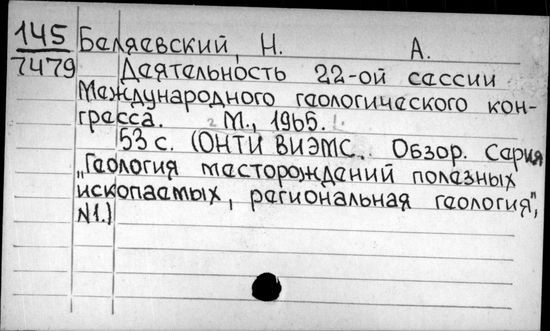 145 Беляевский, Н. А.
7479 Деятельность 22-ой сессии
Международного геологического кон-
гресса. М., 1965.
53 с. (ОНТИ ВИЭМС. Обзор. Серия
"Геология месторождений полезных
ископаемых, региональная геология",
N1.)